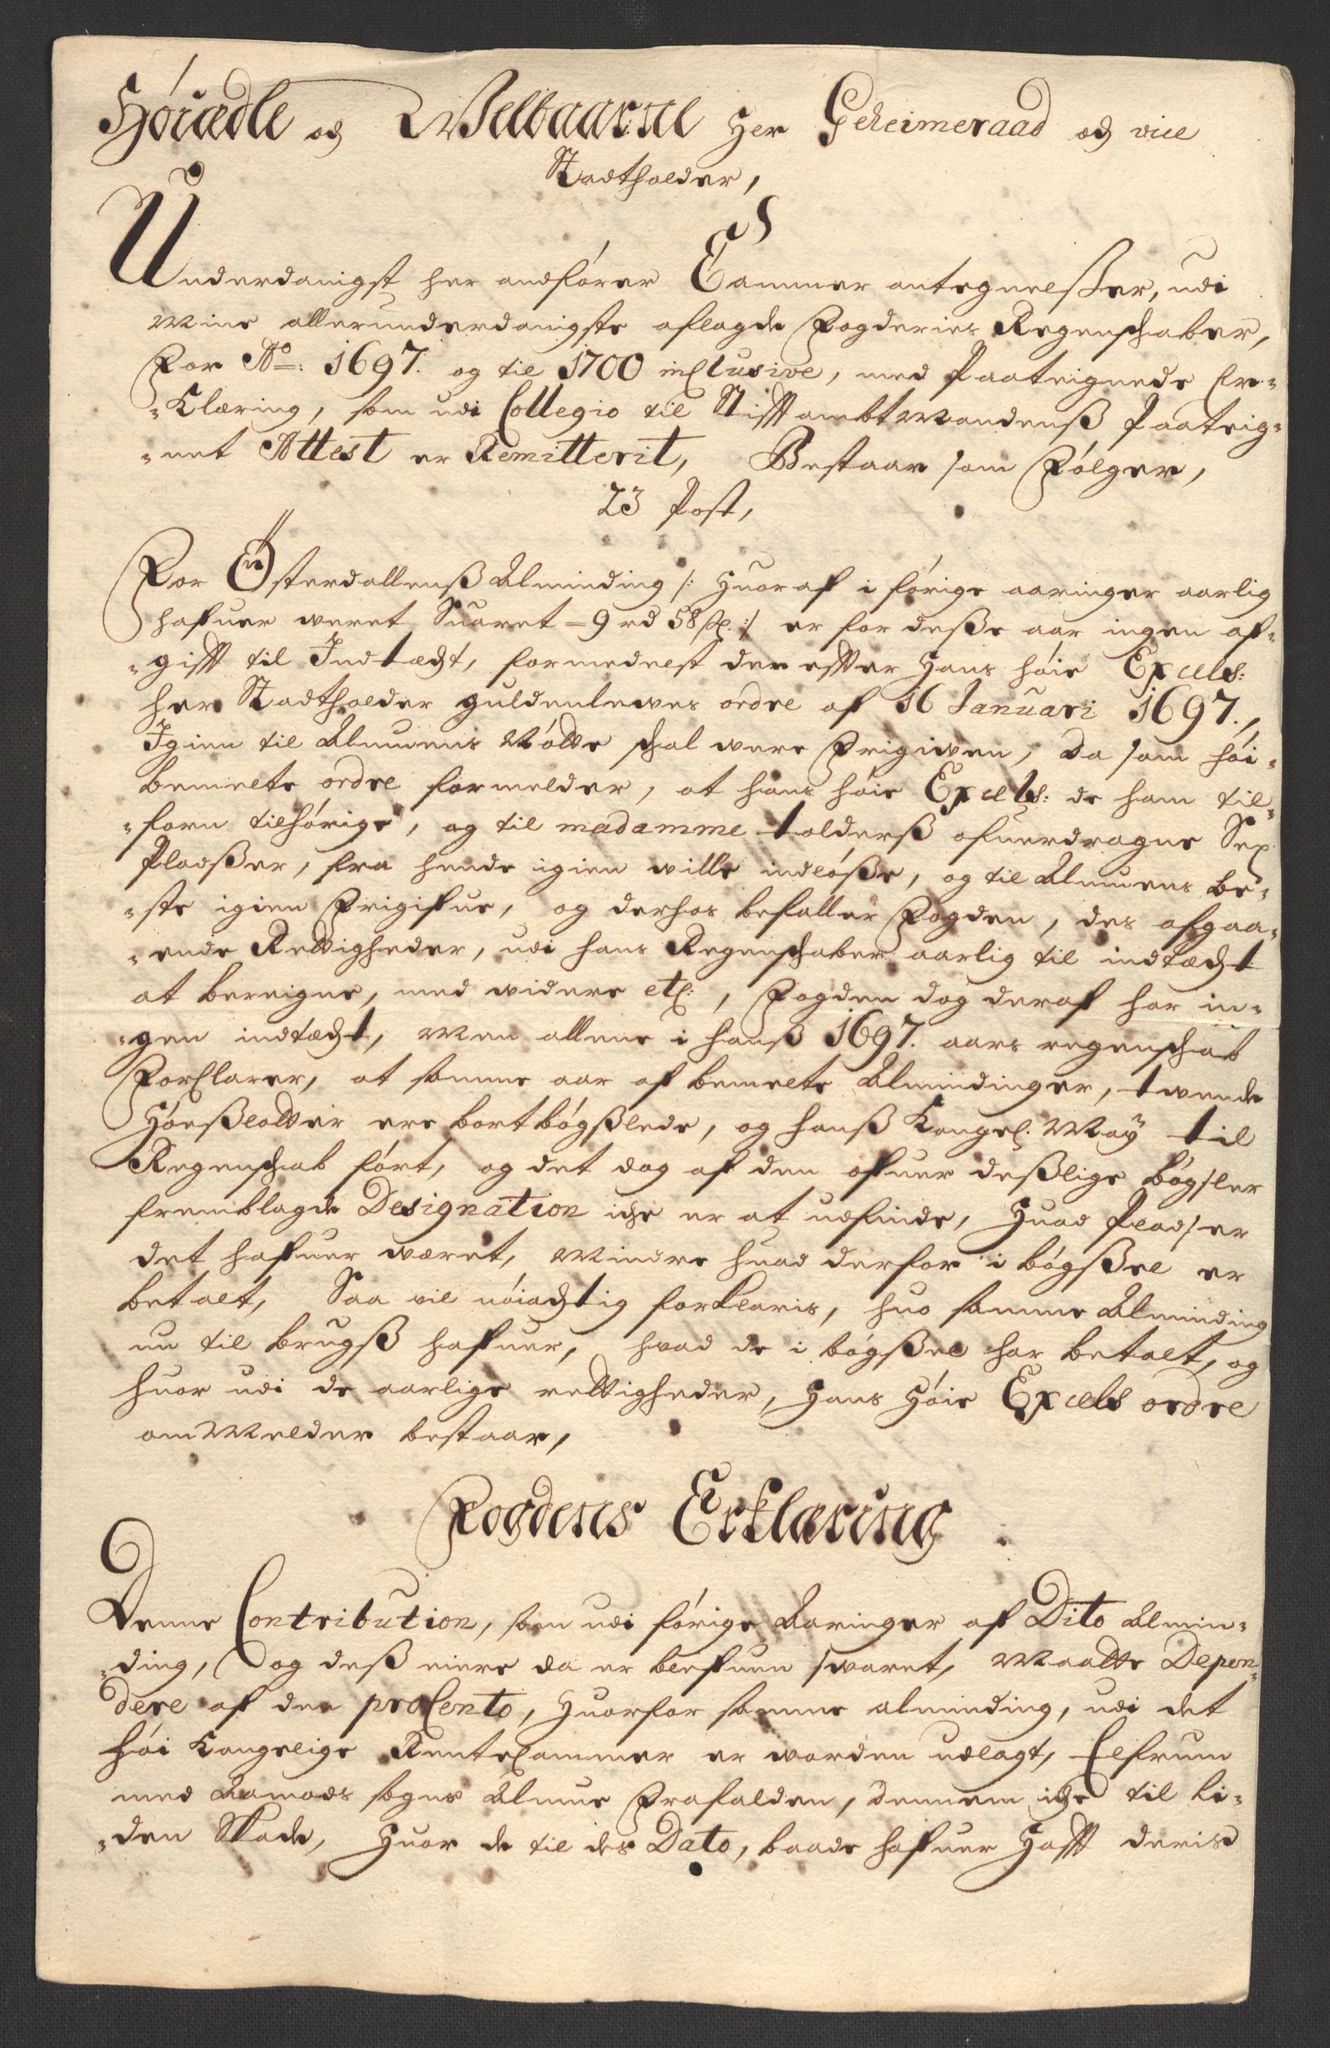 Høiædle og Welbaarne Her Geheimeraad og vice
Stadtholder,
Underdanigst her andfører Cammer antegnelsser, udi
mine allerunderdanigste aflagde Fogderies Regenschaber,
For Ao: 1697. og til 1700 inclusive, med Paateignede Er-
-Klæring, som udi Collegio til Stifftambtmandenß Paateig-
-net Attest er Remitterit, Bestaar som Følger,
23 Post,
For Østerdallenß Alminding /: Huoraf i førige aaringer aarlig
hafuer weret Suaret - 9 rd 58 sk. :/ er for deße aar ingen af-
-gifft til Indtæcht, formedelst der effter Hans høie Excels:
her Stadtholder guldenlewes ordre af 16 Januari 1697.,
Igien til Almuens Nøtte schal were Frigiwen, da som høi-
bemelte ordre formelder, at hans høie Excels: de ham til-
-forn tilhørige, og til madamme tolderß ofuerdragne Sex
Pladßer, fra hende igien wille indløße, og til Almuens be-
-ste igien Frigifue, og derhos befaller Fogden, des afgaa-
-ende Rettigheder, udi hans Regenschaber aarlig til indtæcht
at bereigne, med widere etc:, Fogden dog deraf har in-
-gen indtæcht, Men allene i hanß 1697. aars regenschab
Forclarer, at samme aar af bemelte Almindinger, twende
Høeßlotter ere bortbøgßlede, og hanß Kongel. May til
Regenschab ført, og det dog af den ofuer deßlige bøgsler
fremblagde Designation iche er at udfinde, Huad Pladser
det hafuer wæret, Mindre huad derfor i bøgßel er
betalt, Saa vil nøiachtig forklaris, huo samme Alminding
nu til brugß hafuer, hvad de i bøgßel har betalt, og
huor udi de aarlige rettigheder, Hans Høie Excels ordre
ommelder bestaar,
Fogdens Erklæring
Denne Contribution, som udi førige Aaringer af Dito Almin-
-ding, og deß eiere da er blefuen swaret, Maatte Depon-
dere af den proCento, Huorfor samme alminding, udi det
høi Kongelige RenteCammer er worden udlagt, Elfrum
med Aamods sogns Almue Frafalden, dennem iche til li-
-den Skade, Huor de til des Dato, baade hafuer Hafft deris